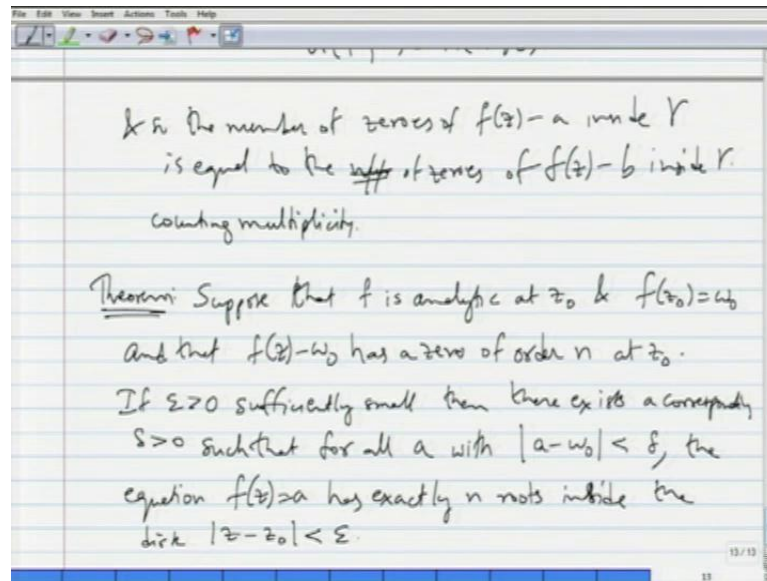 File Edit View Insert Actions Tools Help
& so the number of zeroes of f(z)-a inside γ
is equal to the # of zeroes of f(z)-b inside γ.
counting multiplicity.
Theorem: Suppose that f is analytic at z₀ & f(z₀)=ω₀
and that f(z)-ω₀ has a zero of order n at z₀.
If ε>0 sufficiently small then there exists a corresponding
δ>0 such that for all a with |a-ω₀| < δ, the
equation f(z)=a has exactly n roots inside the
disk |z-z₀| < ε.
13/13
13